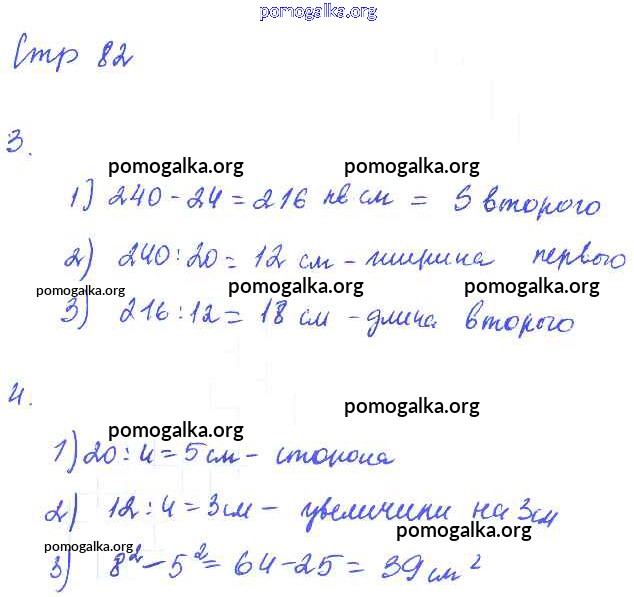 pomogalka.org
Стр 82
3.
pomogalka.org pomogalka.org
1) 240 - 24 = 216 кв см = S второго
2) 240 : 20 = 12 см - ширина первого
pomogalka.org pomogalka.org pomogalka.org
3) 216 : 12 = 18 см - длина второго
4.
pomogalka.org
pomogalka.org
1) 20 : 4 = 5 см - сторона
2) 12 : 4 = 3 см - увеличили на 3 см
pomogalka.org
pomogalka.org
3) 8² - 5² = 64 - 25 = 39 см²